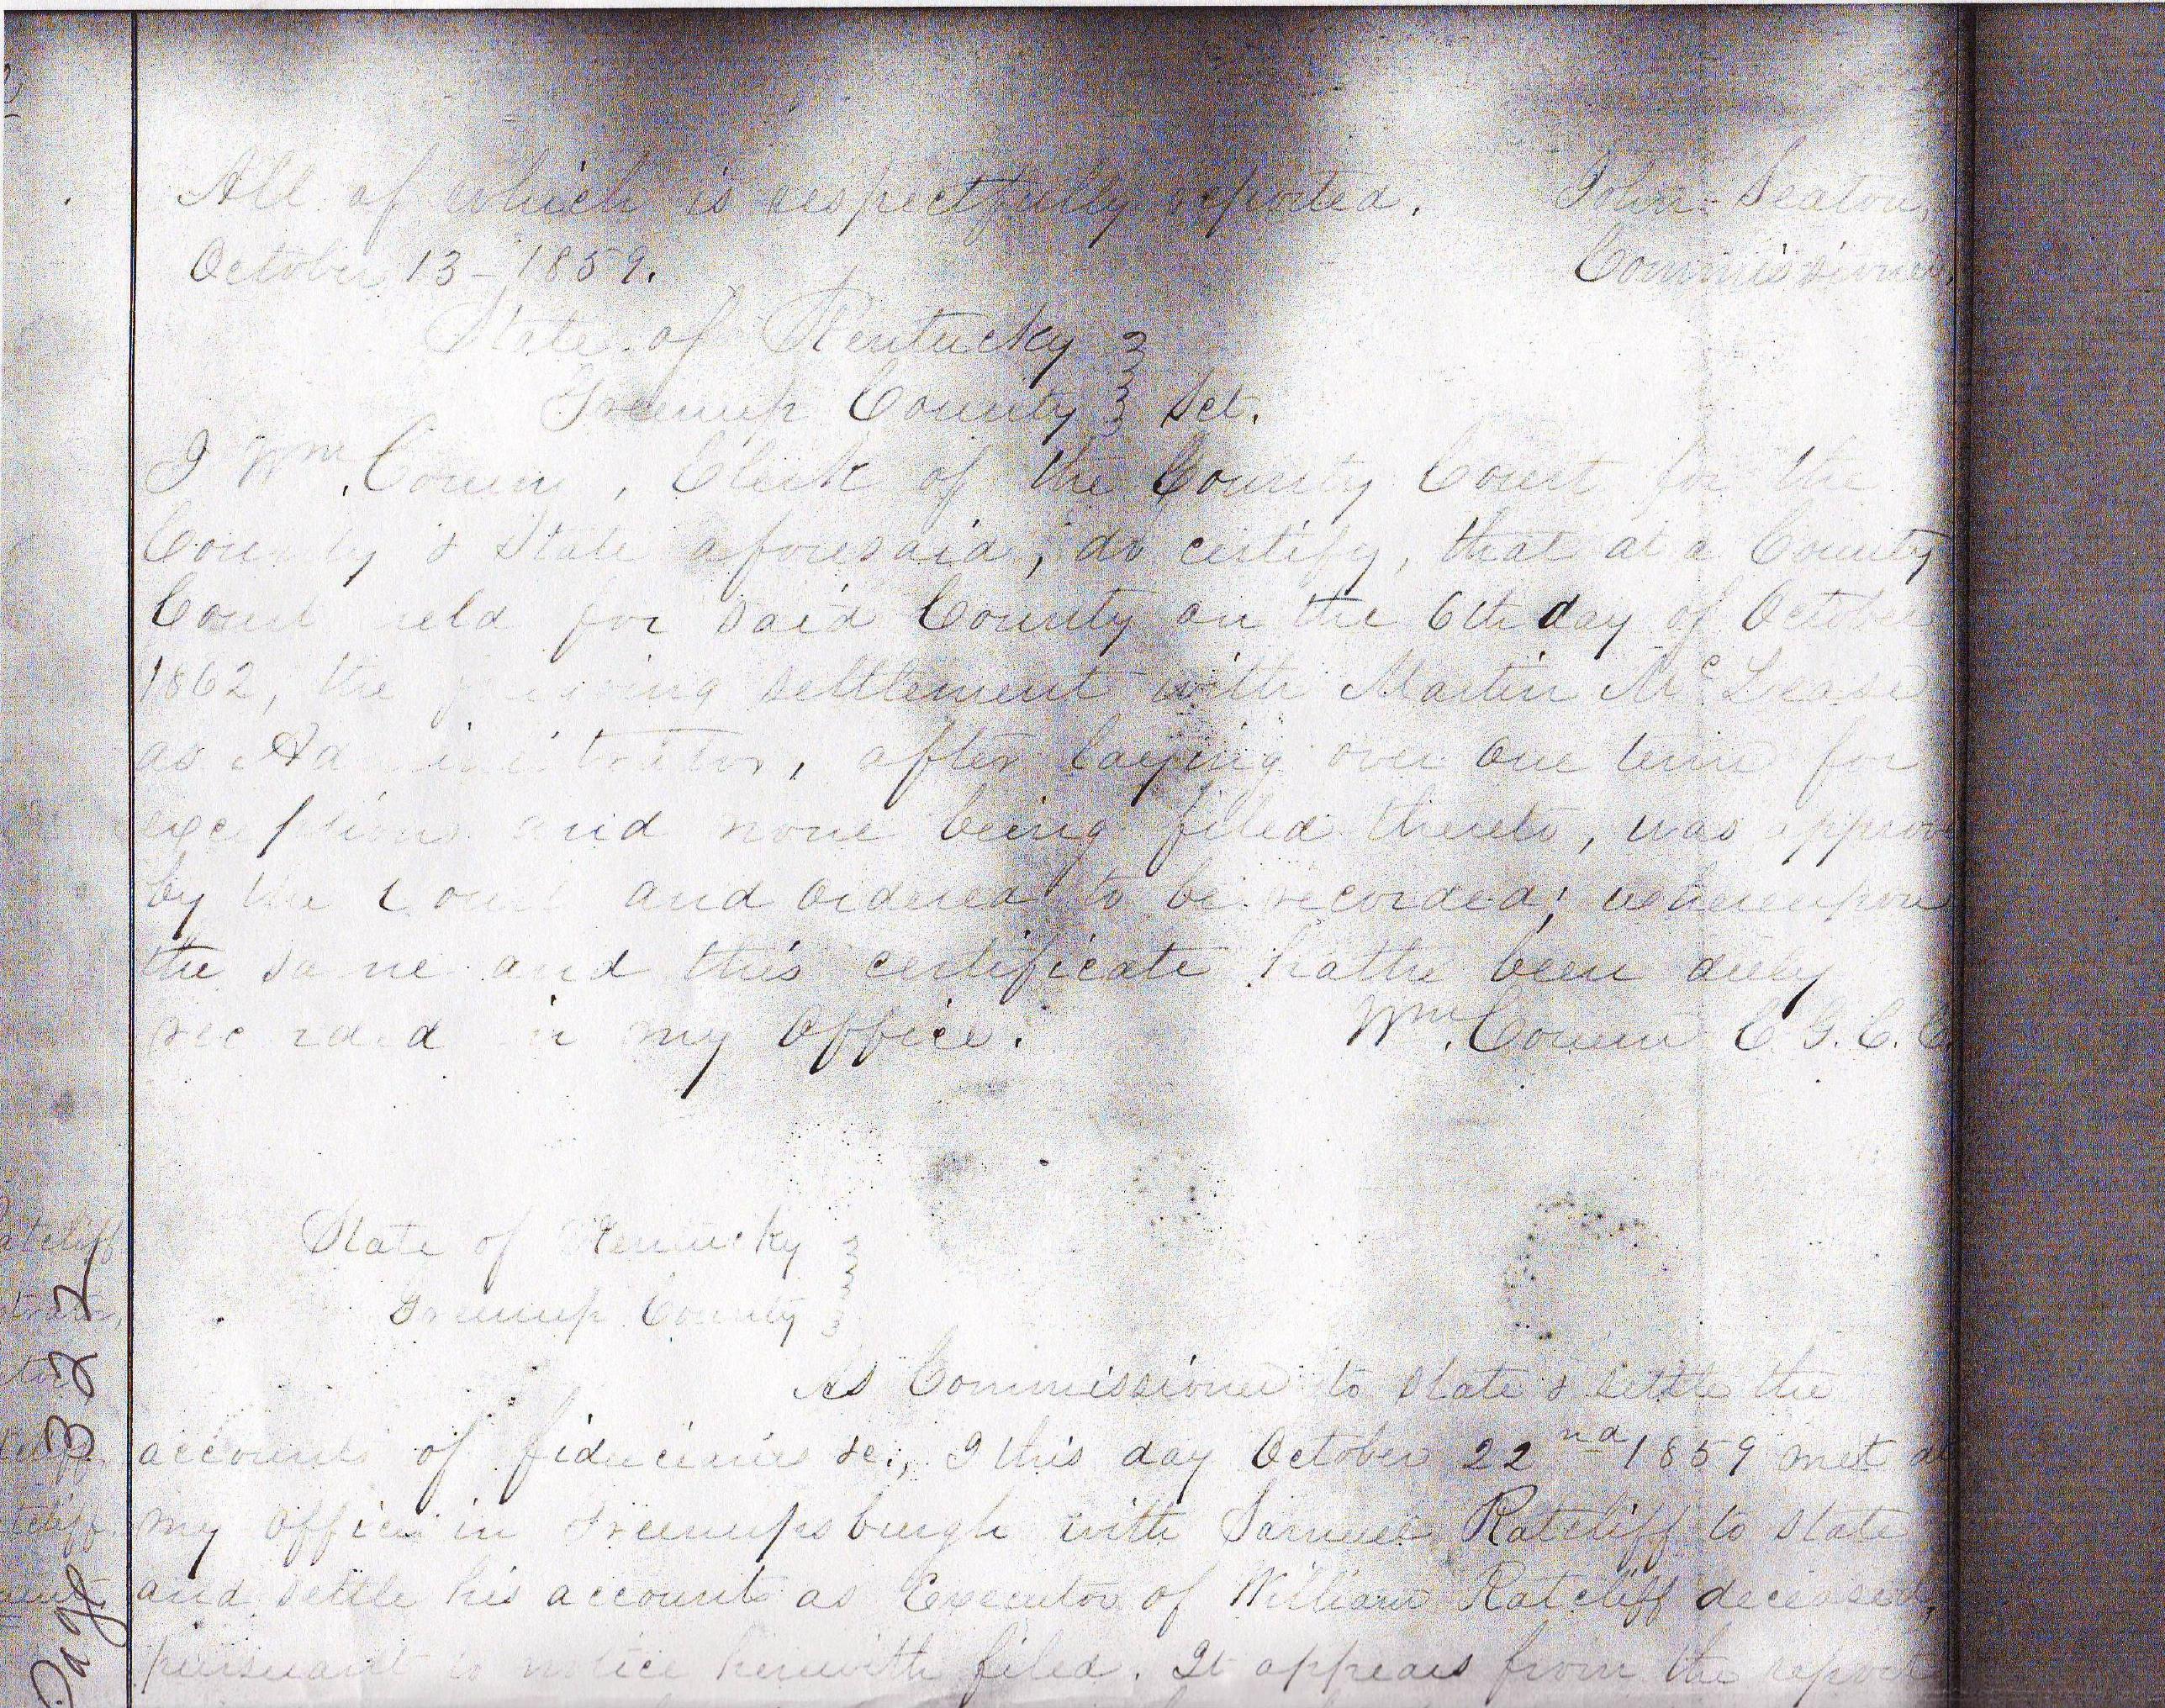 All of which is respectfully reported. John Seaton
October 13 - 1859. Commissioner,
State of Kentucky }
Greenup County } Sct.
I Wm. Corum, Clerk of the County Court for the
County & State aforesaid, do certify, that at a County
Court held for said County on the 6th day of October
1862, the foregoing settlement with Martin McLease
as Administrator, after laying over one term for
exceptions and none being filed thereto, was approve
by the Court and ordered to be recorded; whereupon
the same and this certificate hath been duly
recorded in my office. Wm. Corum C. G. C. C.
State of Kentucky }
Greenup County }
As Commissioner to state & settle the
accounts of fiduciaries &c., I this day October 22nd 1859 met at
my office in Greenupsburgh with Samuel Ratcliff to state
and settle his accounts as Executor of William Ratcliff deceased,
pursuant to notice herewith filed. It appears from the report
atcliff
Page 322